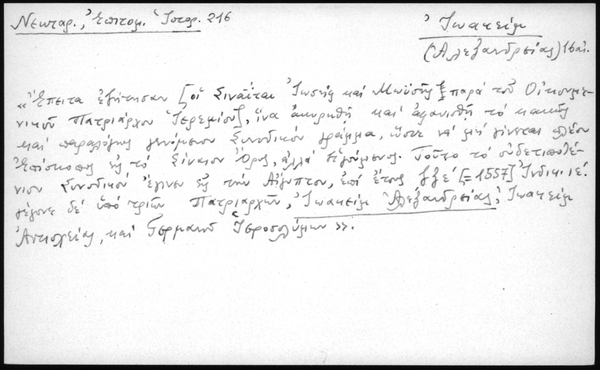 Νεκταρ., Ἐπιτομ. Ἱστορ. 216
Ἰωακεὶμ
(Ἀλεξανδρείας) 16 αἰ.
«Ἔπειτα ἐζήτησαν [οἱ Σιναῖται Ἰωσὴφ καὶ Μωϋσῆς] παρὰ τοῦ Οἰκουμε-
νικοῦ Πατριάρχου Ἱερεμίου, ἵνα ἀκυρωθῇ καὶ ἀφανισθῇ τὸ κακῶς
καὶ παραλόγως γενόμενον Συνοδικὸν γράμμα, ὥστε νὰ μὴ γίνεται πλέον
Ἐπίσκοπος εἰς τὸ Σίναιον Ὄρος, ἀλλὰ Ἡγούμενος. Τοῦτο τὸ
Συνοδικὸν ἔγινεν εἰς τὴν Αἴγυπτον, ἐπὶ ἔτους ζξε΄ [=1557] Ἰνδικ. ιε΄.
γέγονε δὲ ὑπὸ τριῶν Πατριαρχῶν, Ἰωακεὶμ Ἀλεξανδρείας, Ἰωακεὶμ
Ἀντιοχείας, καὶ Γερμανοῦ Ἱεροσολύμων».